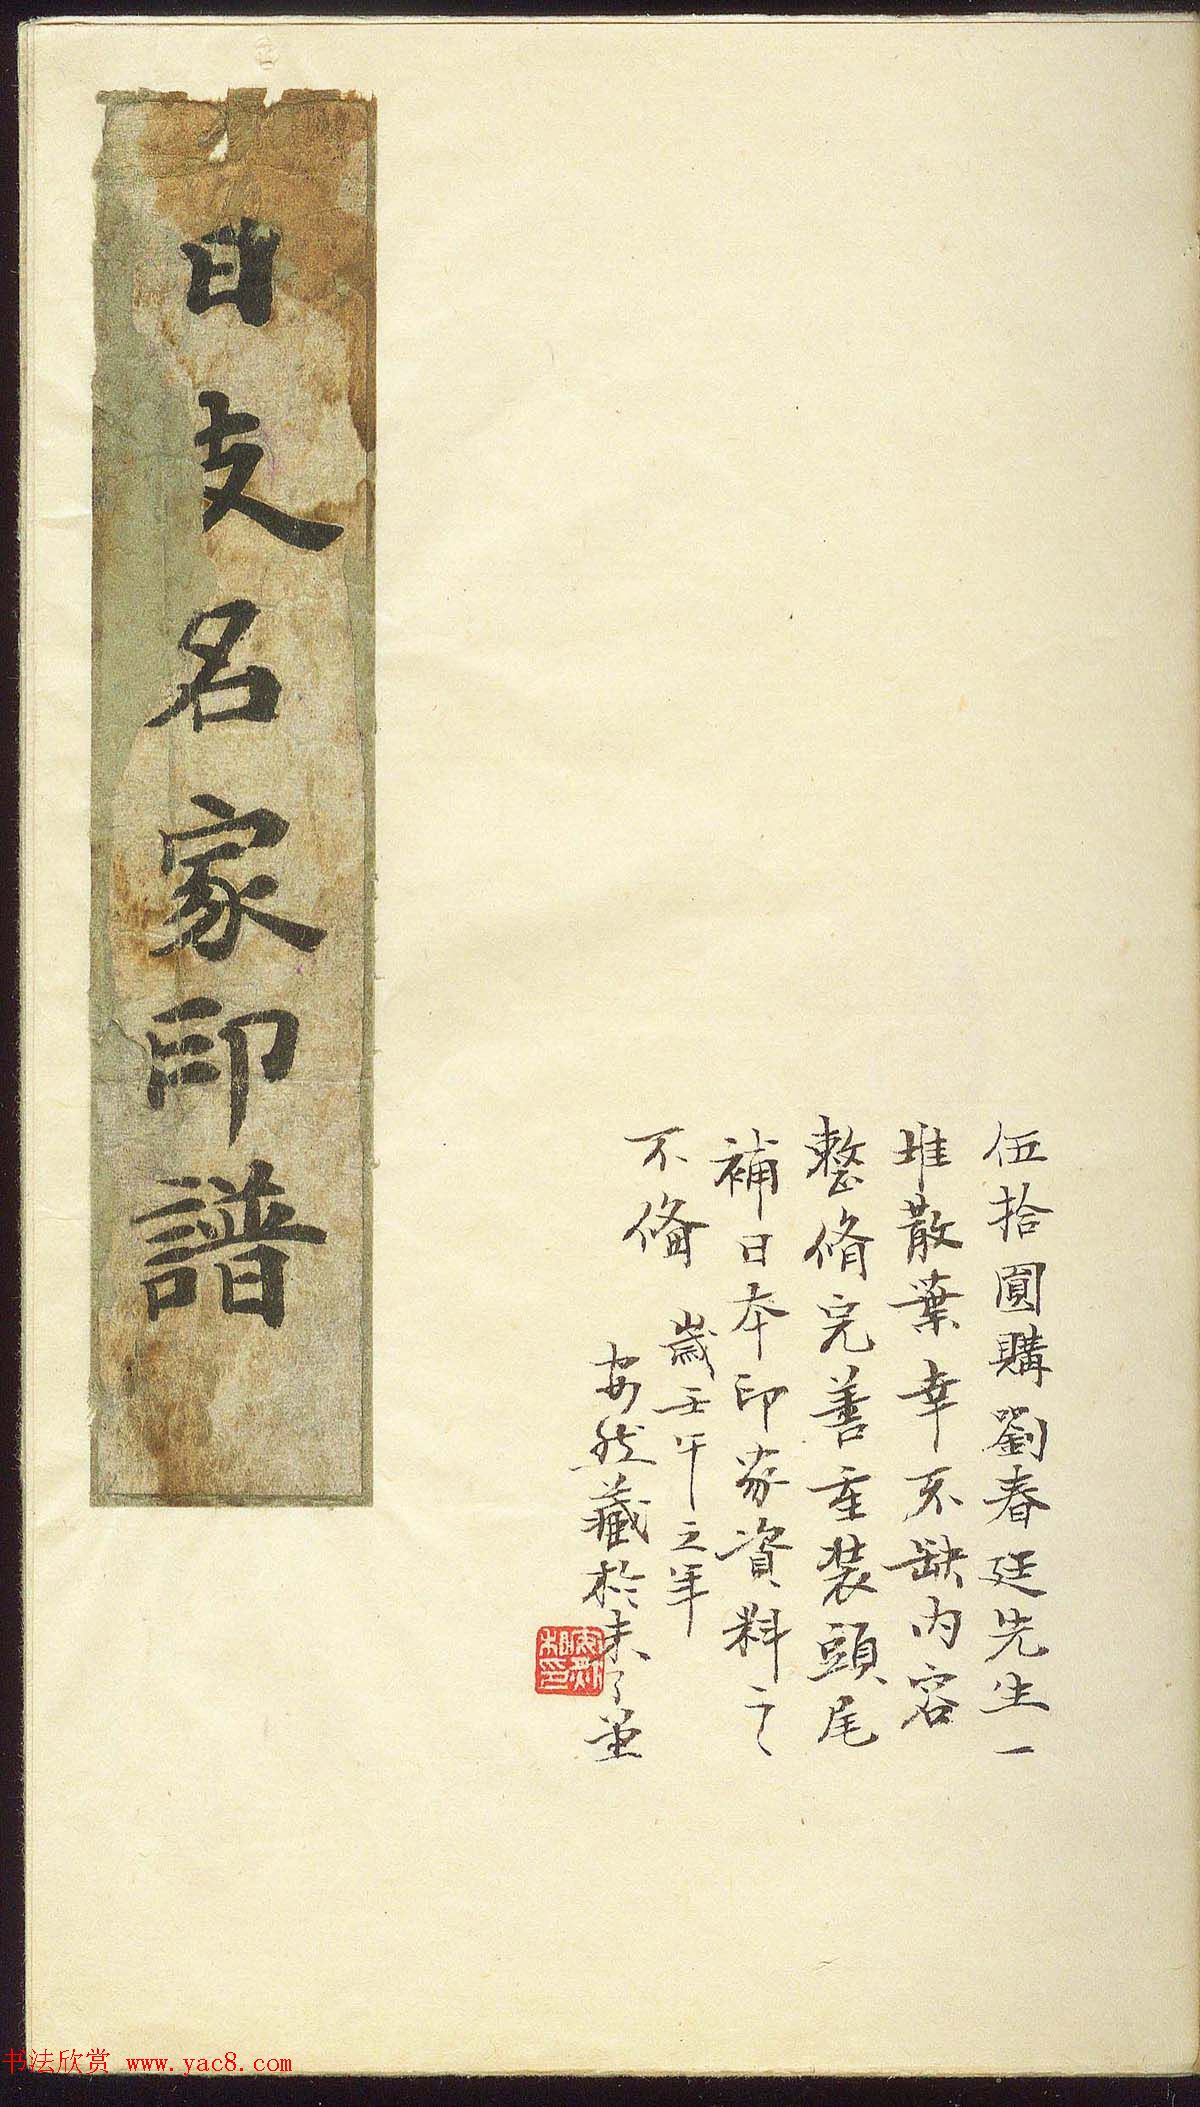 日支名家印譜
伍拾圓購劉春廷先生一
堆散葉幸不缺内容
整脩完善重裝頭尾
補日本印家資料之
不俻
歲壬午之年
安然藏於未了
书法欣赏 www.yac8.com